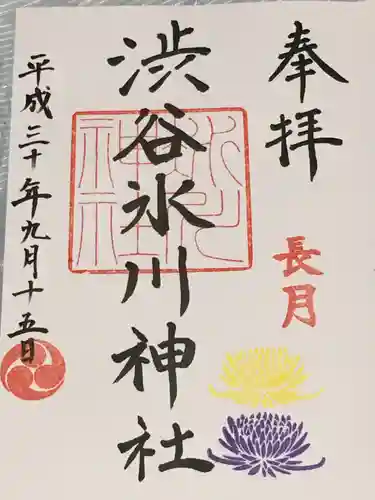 奉拝
長月
渋谷氷川神社
氷川神社
平成三十年九月十五日